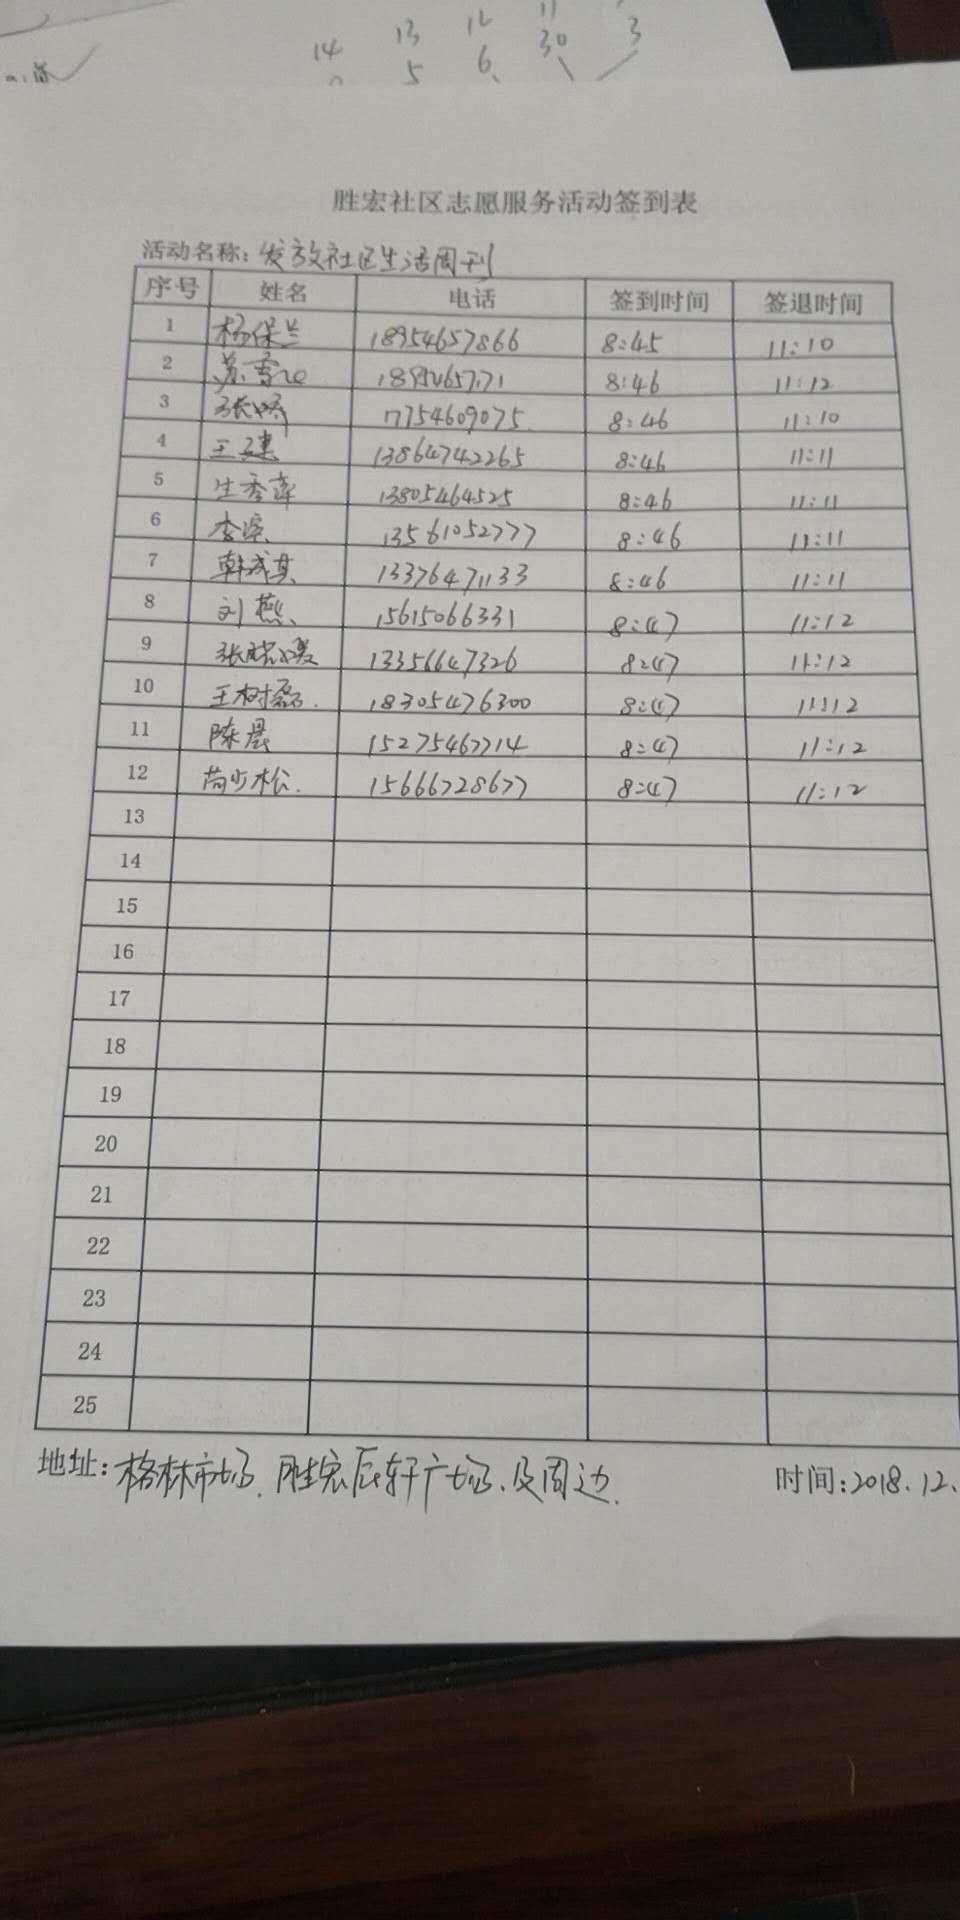 14 13 12 11
5 6 30 3
胜宏社区志愿服务活动签到表
活动名称:发放社区生活周刊
序号 姓名 电话 签到时间 签退时间
1 杨保兰 18954657866 8:45 11:10
2 苏雪 8:46 11:12
3 8:46 11:10
4 王建 13864742265 8:46 11:11
5 生秀萍 13805464525 8:46 11:11
6 13561052777 8:46 11:11
7 韩成其 13376471133 8:46 11:11
8 刘燕 15615066331 8:47 11:12
9 13356647326 8:47 11:12
10 王树磊. 18305476300 8:47 11:12
11 陈晨 15275467714 8:47 11:12
12 苟少松. 15666728677 8:47 11:12
13
14
15
16
17
18
19
20
21
22
23
24
25
地址:格林市场、胜宏辰轩广场、及周边.
时间:2018.12.